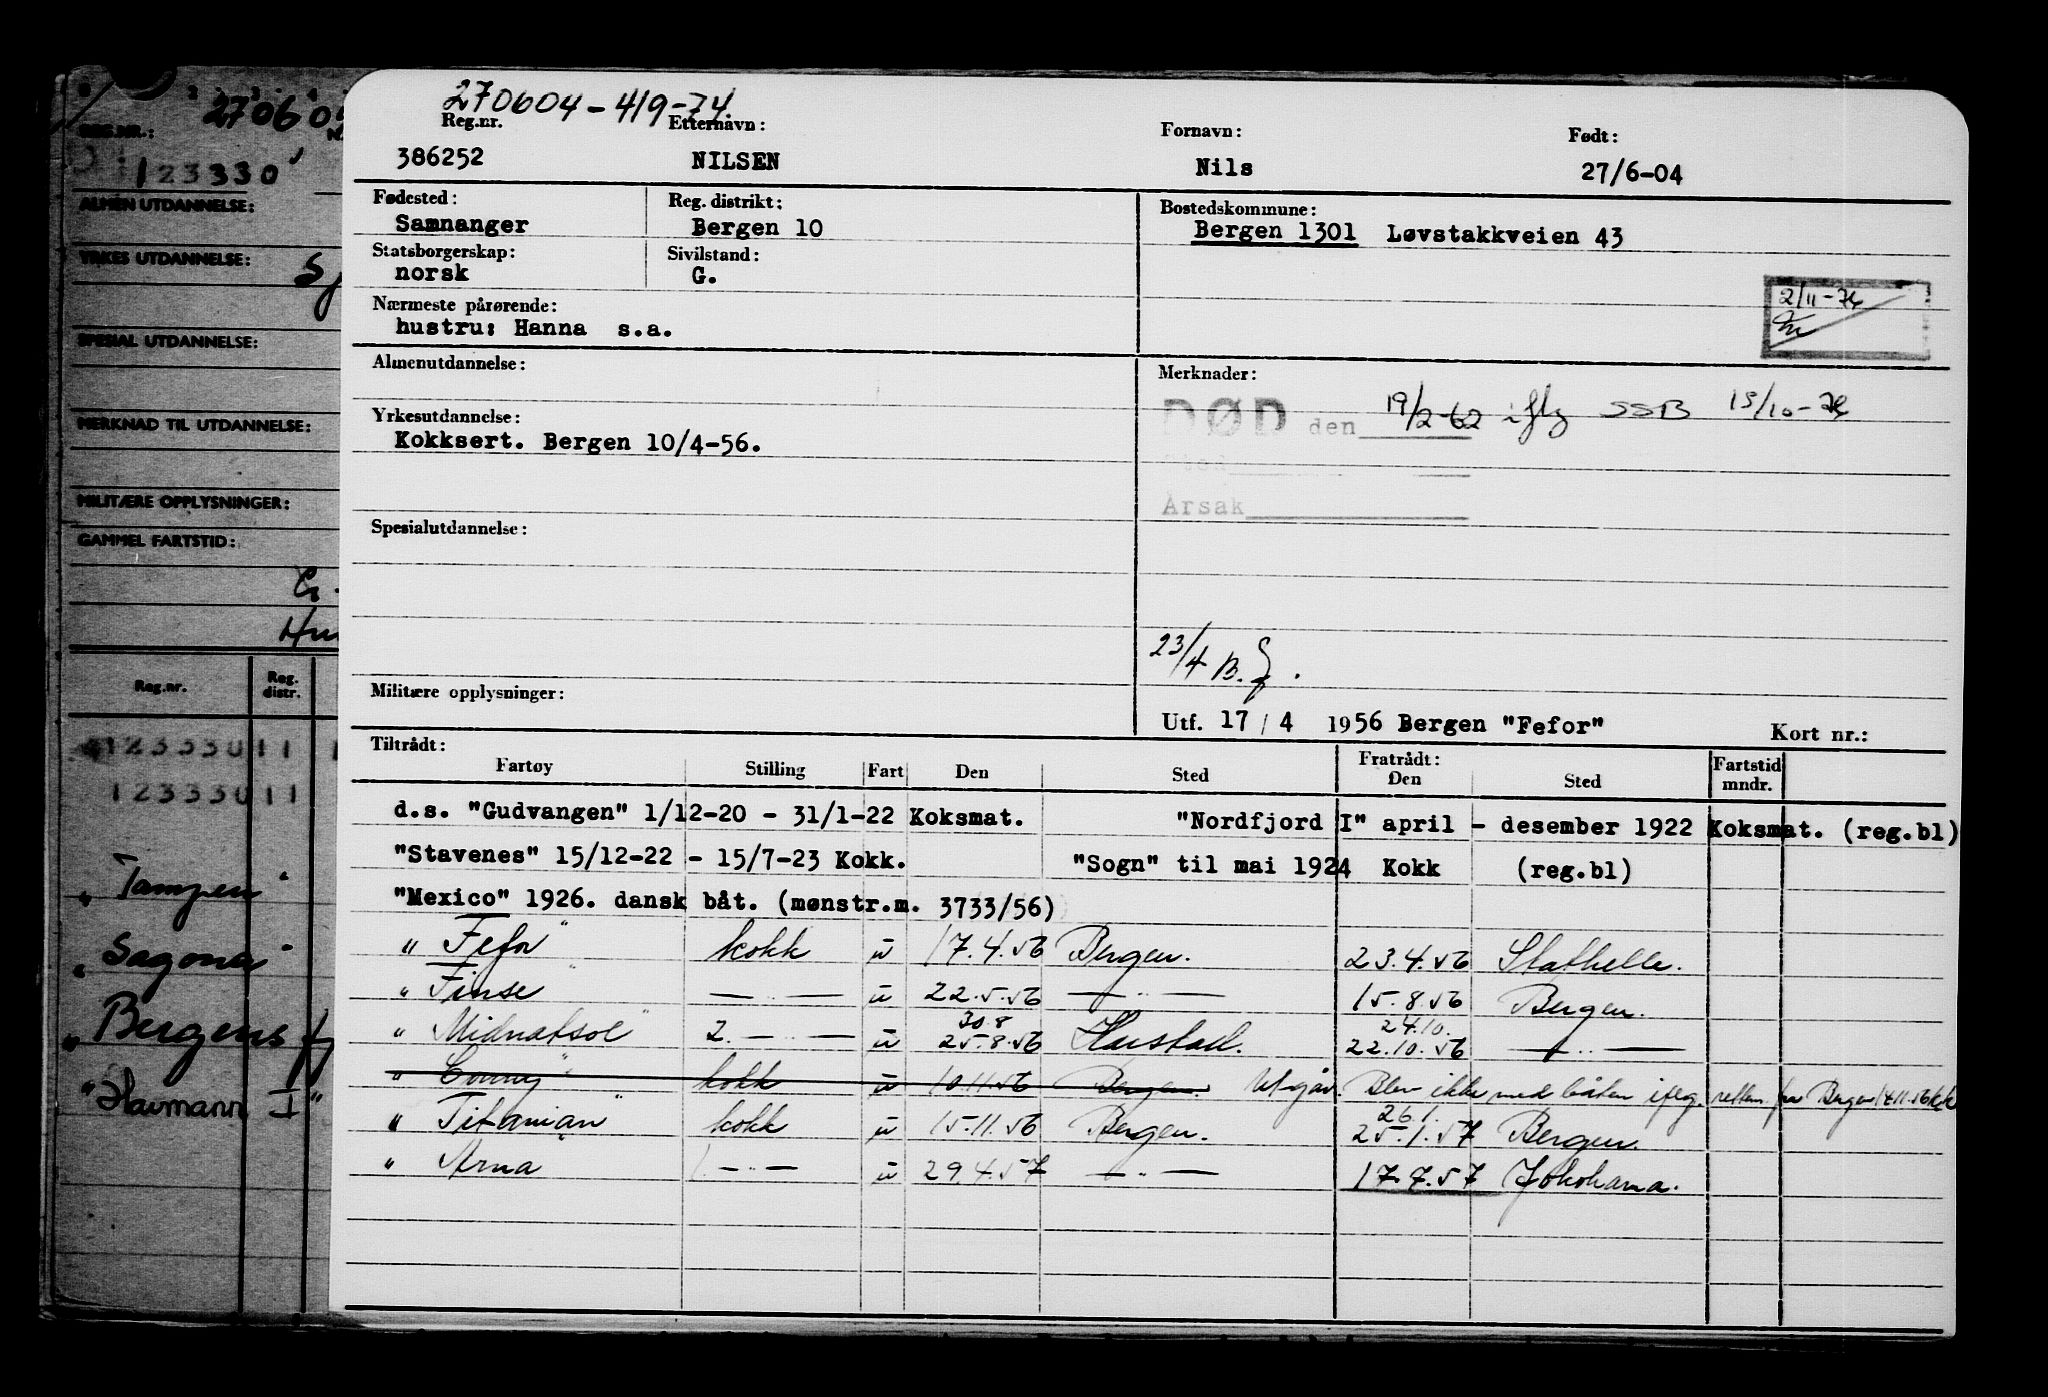 270604-419-74
Reg.nr. Etternavn: Fornavn: Født:
386252 NILSEN Nils 27/6-04
Fødested: Reg. distrikt: Bostedskommune:
Samnanger Bergen 10 Bergen 1301 Løvstakkveien 43
Statsborgerskap: Sivilstand:
norsk G.
Nærmeste pårørende:
hustru: Hanna s.a.
2/11-74
Almenutdannelse: Merknader:
DØD den 19/2-62 iflg SSB 15/10-74
Yrkesutdannelse:
Kokksert. Bergen 10/4-56.
Sted
Årsak
Spesialutdannelse:
23/4 B.
Militære opplysninger:
Utf. 17/4 1956 Bergen "Fefor" Kort nr.:
Tiltrådt: Fratrådt:
Fartøy Stilling Fart Den Sted Den Sted Fartstid mndr.
d.s. "Gudvangen" 1/12-20 - 31/1-22 Koksmat. "Nordfjord I" april - desember 1922 Koksmat. (reg.bl)
"Stavenes" 15/12-22 - 15/7-23 Kokk. "Sogn" til mai 1924 Kokk (reg.bl)
"Mexico" 1926. dansk båt. (mønstr.m. 3733/56)
" Fefor " kokk u 17.4.56 Bergen. 23.4.56 Stathelle.
" Finse " — " — u 22.5.56 — " — 15.8.56 Bergen.
30.8 24.10.
" Midnatsol " 2. — " — u 25.8.56 Harstad. 22.10.56 — " —
" Conny " kokk u 10.11.56 Bergen. Utgår. Blev ikke med båten iflg. retten fra Bergen 14.11.56
26.1.
" Titanian " kokk u 15.11.56 Bergen. 25.1.57 Bergen.
" Arna — " — u 29.4.57 — " — 17.7.57 Yokohama.
27060
REG.NR.:
123330
ALMEN UTDANNELSE:
YRKES UTDANNELSE:
SPESIAL UTDANNELSE:
MERKNAD TIL UTDANNELSE:
MILITÆRE OPPLYSNINGER:
GAMMEL FARTSTID:
Reg.nr. Reg. distr.
123330 11
123330 11
" Tampen "
" Sagona "
" Bergensfj
" Havmann I "